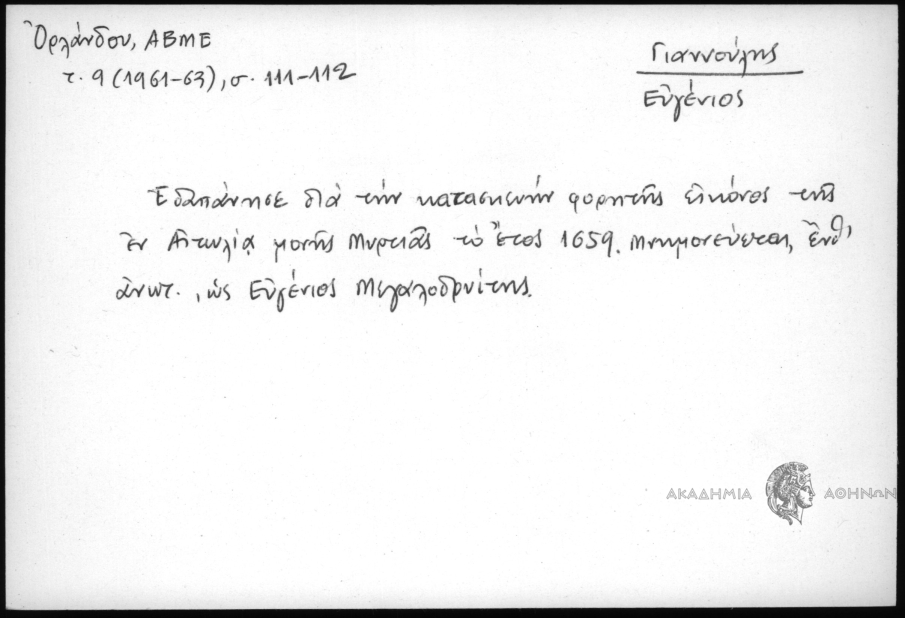 Ὀρλάνδου, ΑΒΜΕ
τ. 9 (1961-63), σ. 111-112
Γιαννούλης
Εὐγένιος
Ἐδαπάνησε διὰ τὴν κατασκευὴν φορητῆς εἰκόνος τῆς
ἐν Αἰτωλίᾳ μονῆς Μυρτιᾶς τὸ ἔτος 1659. Μνημονεύεται, ἔνθ,
ἀνωτ., ὡς Εὐγένιος Μεγαλοδρνίτης.
ΑΚΑΔΗΜΙΑ ΑΘΗΝΩΝ